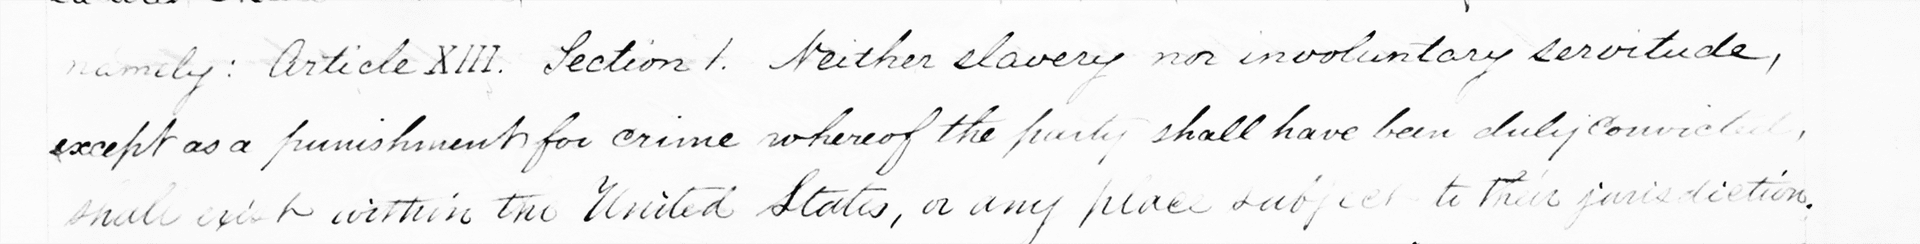 namely: Article XIII. Section 1. Neither slavery nor involuntary servitude,
except as a punishment for crime whereof the party shall have been duly convicted,
shall exist within the United States, or any place subject to their jurisdiction.